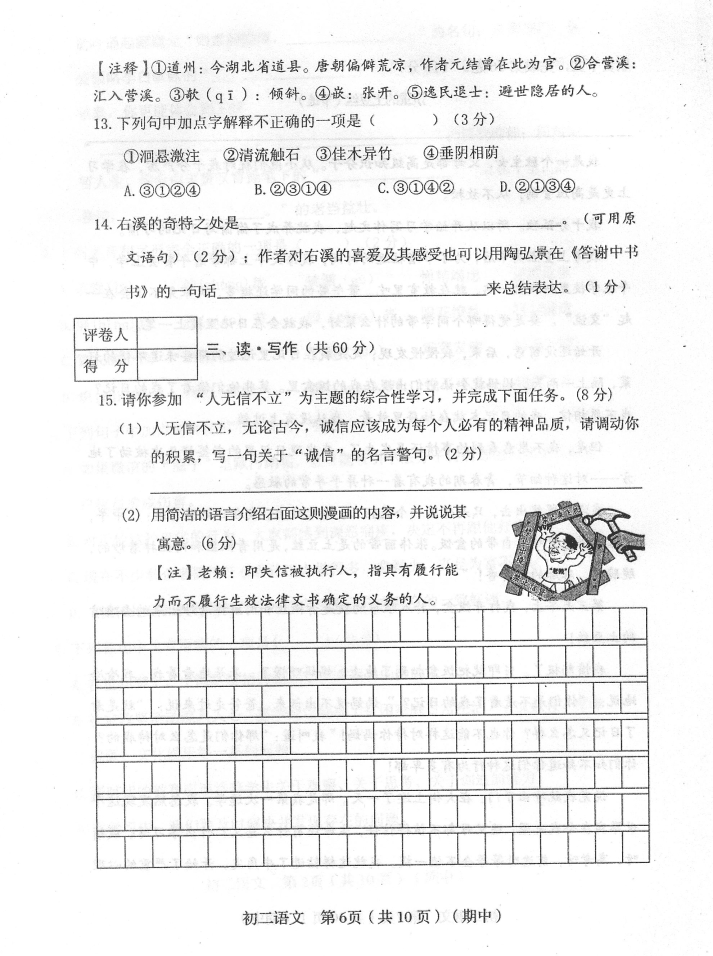 【注释】①道州：今湖北省道县。唐朝偏僻荒凉，作者元结曾在此为官。②合营溪：
汇入营溪。③欹（qī）：倾斜。④嵌：张开。⑤逸民退士：避世隐居的人。
13.下列句中加点字解释不正确的一项是（ ）（3分）
①洄悬激注 ②清流触石 ③佳木异竹 ④垂阴相荫
A.③①②④ B.②③①④ C.③①④② D.②①③④
14.右溪的奇特之处是 。（可用原
文语句）（2分）；作者对右溪的喜爱及其感受也可以用陶弘景在《答谢中书
书》的一句话 来总结表达。（1分）
评卷人
得 分
三、读·写作（共60分）
15.请你参加 “人无信不立”为主题的综合性学习，并完成下面任务。（8分）
（1）人无信不立，无论古今，诚信应该成为每个人必有的精神品质，请调动你
的积累，写一句关于“诚信”的名言警句。（2分）
（2）用简洁的语言介绍右面这则漫画的内容，并说说其
寓意。（6分）
【注】老赖：即失信被执行人，指具有履行能
力而不履行生效法律文书确定的义务的人。
“老赖”
初二语文 第6页（共10页）（期中）